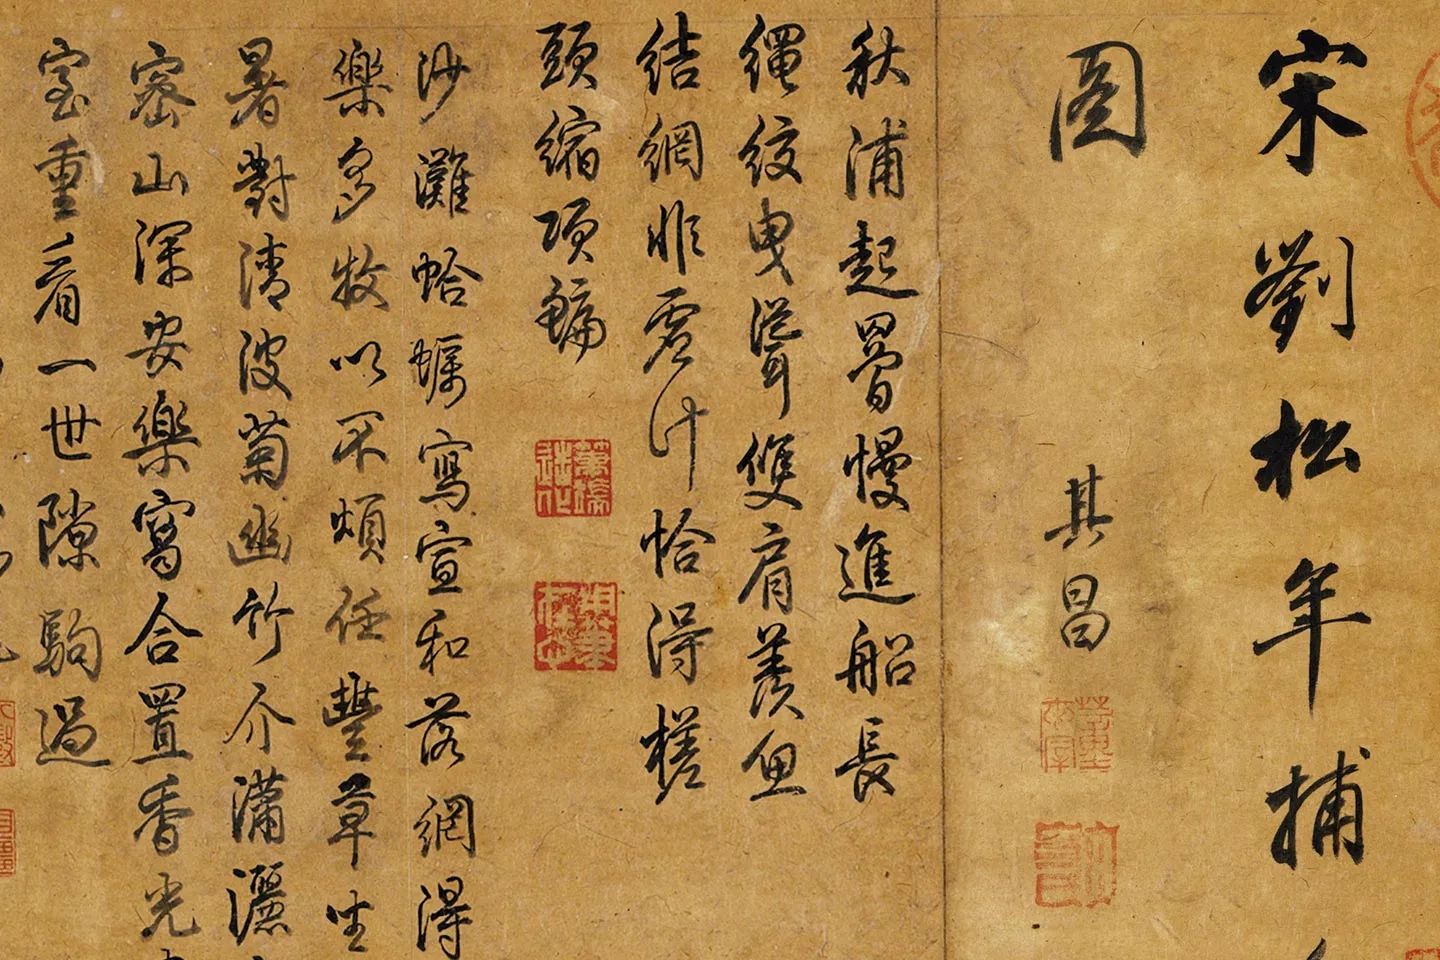 宋劉松年捕
圖
其昌
秋浦起罾慢進船長
繩紋曳濕聳雙肩羨魚
結網非虛計恰得槎
頭縮項鯿
沙灘蛤蠣寫宣和落網得
樂多牧以不煩任豐草生
暑對清波菊幽竹介瀟灑
密山深安樂窩合置香光
室重看一世隙駒過